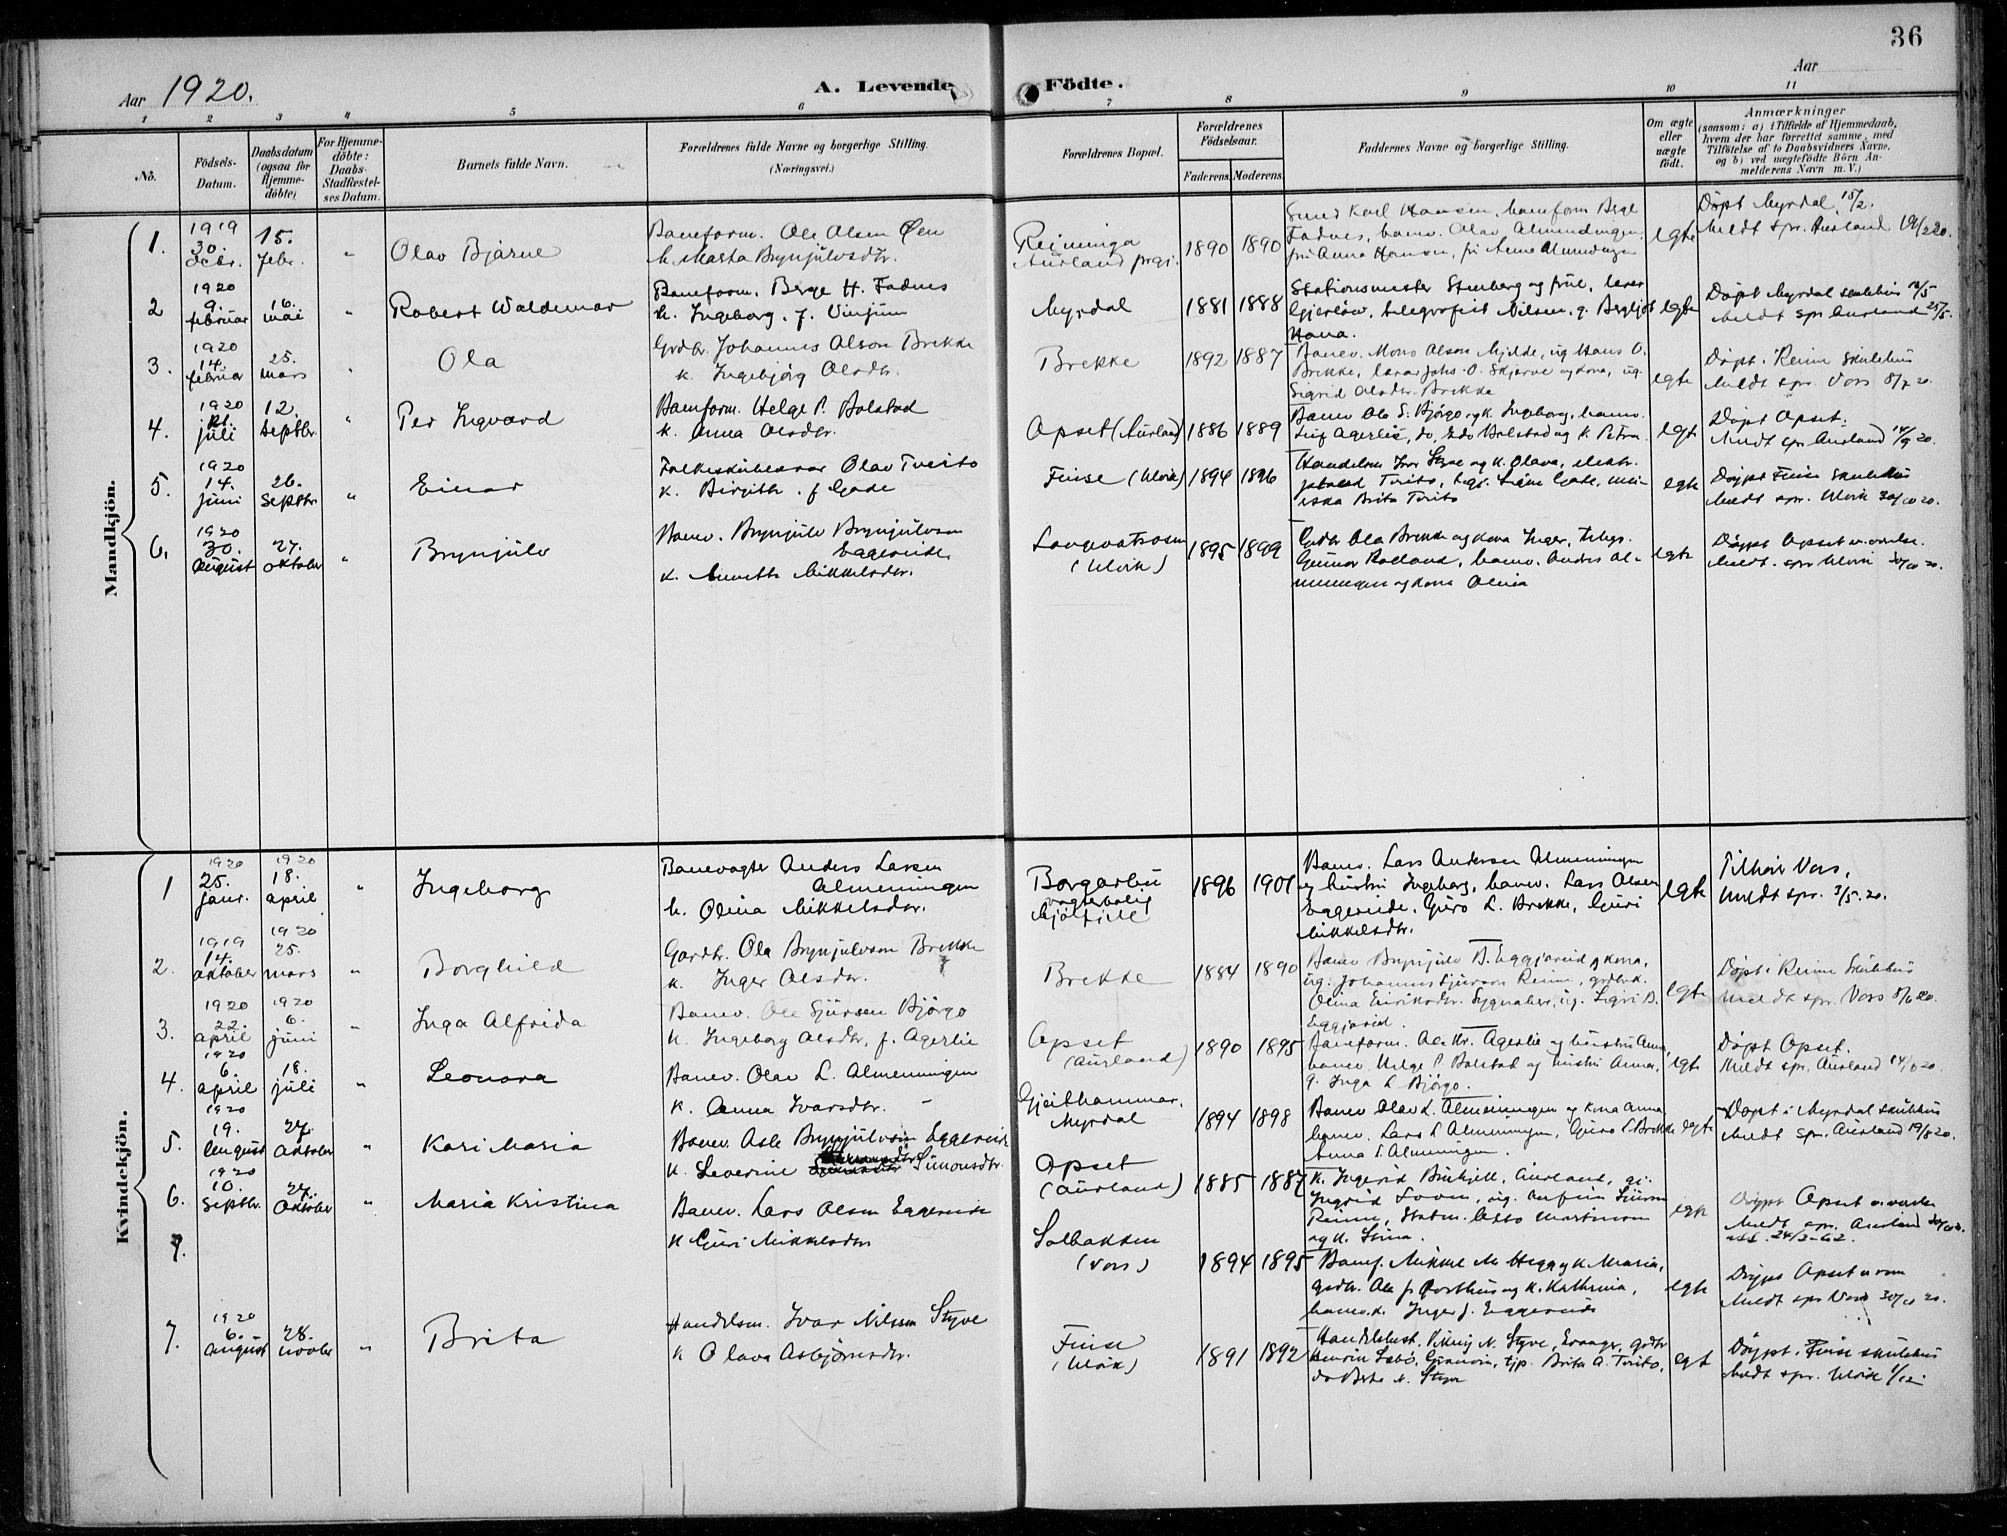 36
Aar 1920.
A. Levende Födte.
Aar
1 2 3 4 5 6 7 8 9 10 11
No.
Födsels-Datum.
Daabsdatum (ogsaa for Hjemmedöbte)
For Hjemmedöbte: Daabs-Stadfæstelses Datum.
Barnets fulde Navn.
Forældrenes fulde Navne og borgerlige Stilling.
(Næringsvei.)
Forældrenes Bopæl.
Forældrenes Födselsaar.
Faderens. Moderens.
Faddernes Navne og borgerlige Stilling.
Om ægte eller uægte födt.
Anmærkninger
(saasom: a) i Tilfælde af Hjemmedaab, hvem der har forrettet samme, med Tilföielse af to Daabsvidners Navne, og b) ved uægtefödte Börn Anmelderens Navn m. V.)
Mandkjön.
1. 1919 30. Dcbr. 15. febr. " Olav Bjarne
Baneform. Ole Olsen Øen
k. Marta Brynjulvsdtr.
Reinunga Aurland prgj. 1890 1890
Smed Karl Hansen, baneform Berge
Fadnes, banev. Olav Almendingen,
fru Anna Hansen, fr. Anna Almendingen
egte
Döpt Myrdal 15/2.
Meldt spr. Aurland 19/2 20.
2 1920 9. februar 16. mai " Robert Waldemar
Baneform. Berge H. Fadnes
k. Ingeborg f. Vinjum
Myrdal 1881 1888
Stationsmester Stenberg og frue, lærer
Gjerløw, telegrafist Nilsen, g. Bergljot
Hana.
egte
Döpt Myrdal skulehus 16/5
Meldt spr Aurland 25/5.
3. 1920 14. februar 25. mars " Ola
Grdbr. Johannes Olson Brekke
k. Ingebjörg Olsdtr.
Brekke 1892 1887
Banev. Mons Olson Mjelde, ug. Hans O.
Brekke, lærar Johs. O. Skjerve og kona, ug.
Sigrid Olsdtr. Brekke
egte
Döpt i Reime Skulehus
Meldt spr. Vors 8/7 20.
4. 1920 21. juli 12. septbr. " Per Ingvard
Baneform. Helge P. Bolstad
k. Anna Olsdtr.
Opset (Aurland) 1886 1889
Banev Ole S. Bjørgo og k. Ingeborg, banev.
Leif Agerlie, do, Edv Bolstad og k. Petra
egte
Döpt Opset.
Meldt spr Aurland 14/9 20.
5. 1920 14. juni 26. septbr. " Einar
Folkeskulelærar Olav Tveito
k. Birgith f Gade
Finse (Ulvik) 1894 1896
Handelsm Ivar Styve og k. Olava,
Tveito,
Brita Tveito
egte
Döypt Finse Skulehus
Meldt spr. Ulvik 30/10 20.
6. 1920 30. august 27. oktober " Brynjulv
Banev. Brynjulv Brynjulvson
Eggereide
k. Annette Mikkelsdtr.
Langvatsosen (Ulvik) 1895 1899
Grdbr Ola Brekke og kona Inger, telegr.
Gunnar Rolland, banev. Anders Al-
menningen og kona Olina
egte
Döypt Opset
Meldt. spr Ulvik 30/10 20.
Kvindekjön.
1 1920 25. januar. 1920 18. april " Ingeborg
Banevogter Anders Larsen
Almenningen
k. Olina Mikkelsdtr.
Borgarlii vogterbolig Mjølfjell 1896 1901
Banev. Lars Andersen Almenningen
og hustru Ingeborg, banev. Lars Olsen
Eggereide, Guro L. Brekke, Guri
Mikkelsdtr.
egte
Tilhøir Vors,
Meldt spr. 3/5. 20.
2. 1919 14. oktober 1920 25. mars " Borghild
Gardbr. Ola Brynjulvson Brekke
k. Inger Olsdtr.
Brekke 1884 1890
Banev Brynjulv B. Eggjareid og kona,
ug. Johannes Sjurson Reime, grdbrk.
Olina Eiriksdtr.
Eggjareid.
egte
Döpt i Reime Skulehus
Meldt spr. Vors
3. 1920 22. april 1920 6. juni " Inga Alfrida
Banev. Ole Sjursen Björgo
k. Ingeborg Olsdtr, f. Agerlie
Opset (Aurland) 1890 1895
Baneform. Ole Kr. Agerlie og hustru Anna,
banev. Helge P. Bolstad og hustru Anna,
g. Inga L Björgo.
egte
Döpt Opset.
Meldt spr. Aurland 14/6 20.
4. 1920 6. april 18. juli " Leonora
Banev. Olav L. Almenningen
k. Anna Ivarsdtr.
Gjeithammar, Myrdal 1894 1898
Banev Olav L. Almenningen og kona Anna
banev. Lars L Almenningen, Guro L Brekke
Anna L Almenningen.
egte
Döpt i Myrdal skulehus
Meldt spr. Aurland 19/8 20.
5. 1920 19. August 27. Oktober " Kari Maria
Banev. Asle Brynjulvson Eggereide
k. Severine Simonsdtr.
Opset (Aurland) 1885 1887
K. Ingerid Birkjell, Aurland,
Ingrid
Reime, Statm. Otto Martinson
og k. Stina.
egte
Döypt Opset
Meldt spr. Aurland
att. 24/3-62.
6. 1920 10. Septbr. 27. Oktober " Maria Kristina
Banev. Lars Olsen Eggereide
k Guri Mikkelsdtr
Solbakken (Vors) 1894 1895
Banef. Mikkel M. Hegg og k Maria,
grdbr. Ole og k. Kathrina,
banev.k. Inger J. Eggereide
egte
Döypt Opset
Meldt spr Vors 30/10 20.
7.
7. 1920 6. August 28. novbr " Brita
Handelsm. Ivar Nilsson Styve
k Olava Asbjørnsdtr.
Finse (Ulvik) 1891 1892
Handelsbest. Viking N. Styve, Evanger, grdbr
Henrik Sebö, Granvin, tjp. Brita A. Tveito,
do Berta N. Styve
egt
Döypt i Finse skulehus
Meldt spr. Ulvik 1/12.